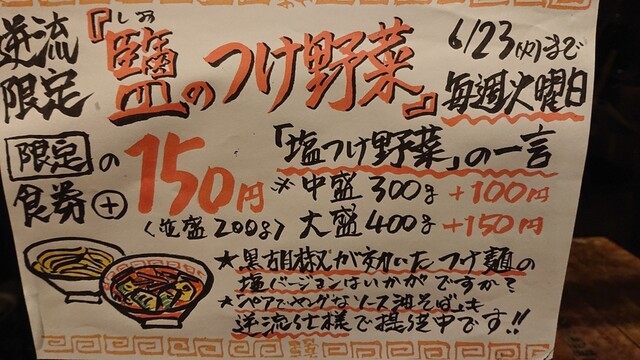 逆流
限定
『鹽のつけ野菜』
しお
6/23(火)まで
毎週火曜日
限定の
食券+
150円
〈並盛200g〉
「塩つけ野菜」の一言
※中盛300g+100円
大盛400g+150円
★黒胡椒が効いたつけ麺の
塩バージョンはいかがですか?
★"ペアでヤングなソース油そば"も
逆流仕様で提供中です!!